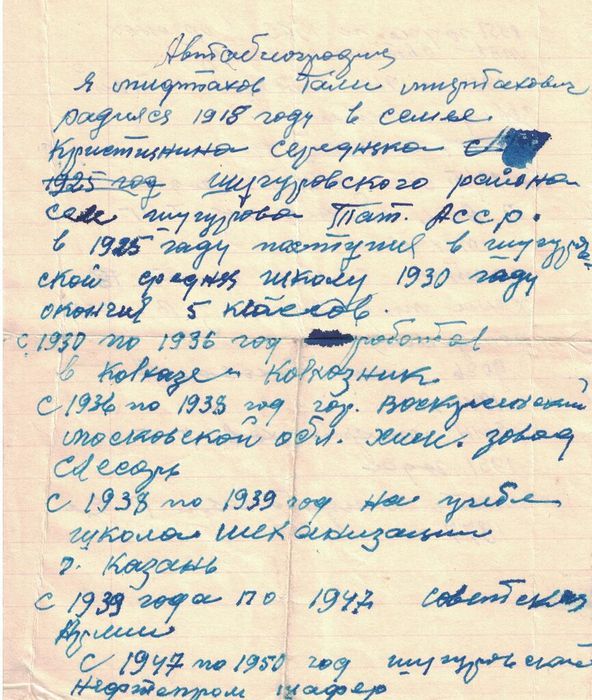 Автабиография
я мифтахов Гали мифтахович
радился 1918 году в семее
Кристиянина середняка
1925 год шугуровского района
села шугурова Тат. Асср.
в 1925 гаду паступил в шугуров-
ской средня школу 1930 гаду
окончил 5 классов.
с 1930 по 1936 год работов
в Колхозе Колхозник
с 1936 по 1938 год гор. Воскресенский
московской обл. хим. завод
слесарь
с 1938 по 1939 год на учебе
школа механизации
г. Казань
с 1939 года по 1947 советская
Армии
с 1947 по 1950 год шугуровской
нефтепром шафер